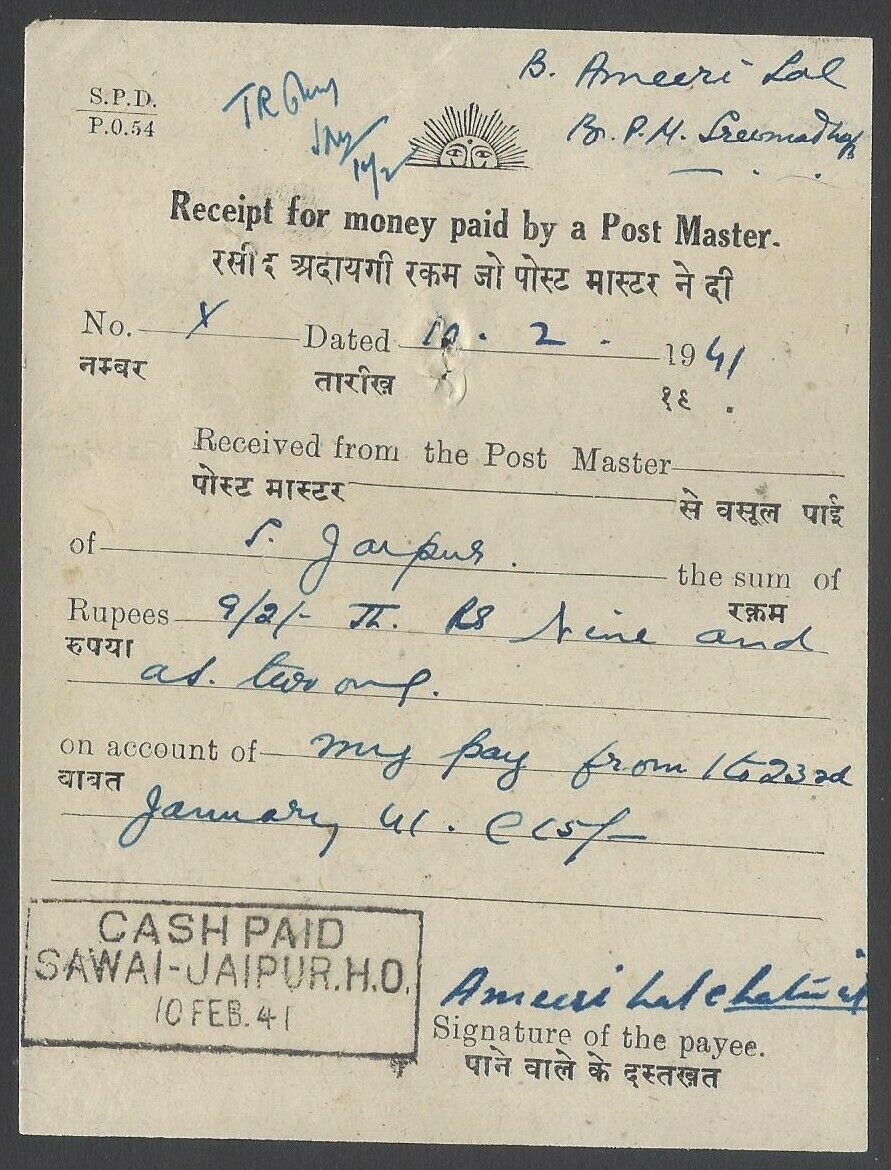 S.P.D.
P.O.54
B. Ameeri Lal
Br. P. M. Sreemadhop
10/2
Receipt for money paid by a Post Master.
रसीद अदायगी रकम जो पोस्ट मास्टर ने दी
No. X Dated 10. 2. 1941
नम्बर तारीख १९ .
Received from the Post Master
पोस्ट मास्टर से वसूल पाई
of S. Jaipur. the sum of
रक़म
Rupees 9/2/- Th. Rs Nine and
रुपया
as. two only.
on account of my pay from 1 to 23rd
बाबत
January, 41. @ 15/-
CASH PAID
SAWAI-JAIPUR.H.O.
10 FEB. 41
Ameeri Lal
Signature of the payee.
पाने वाले के दस्तखत